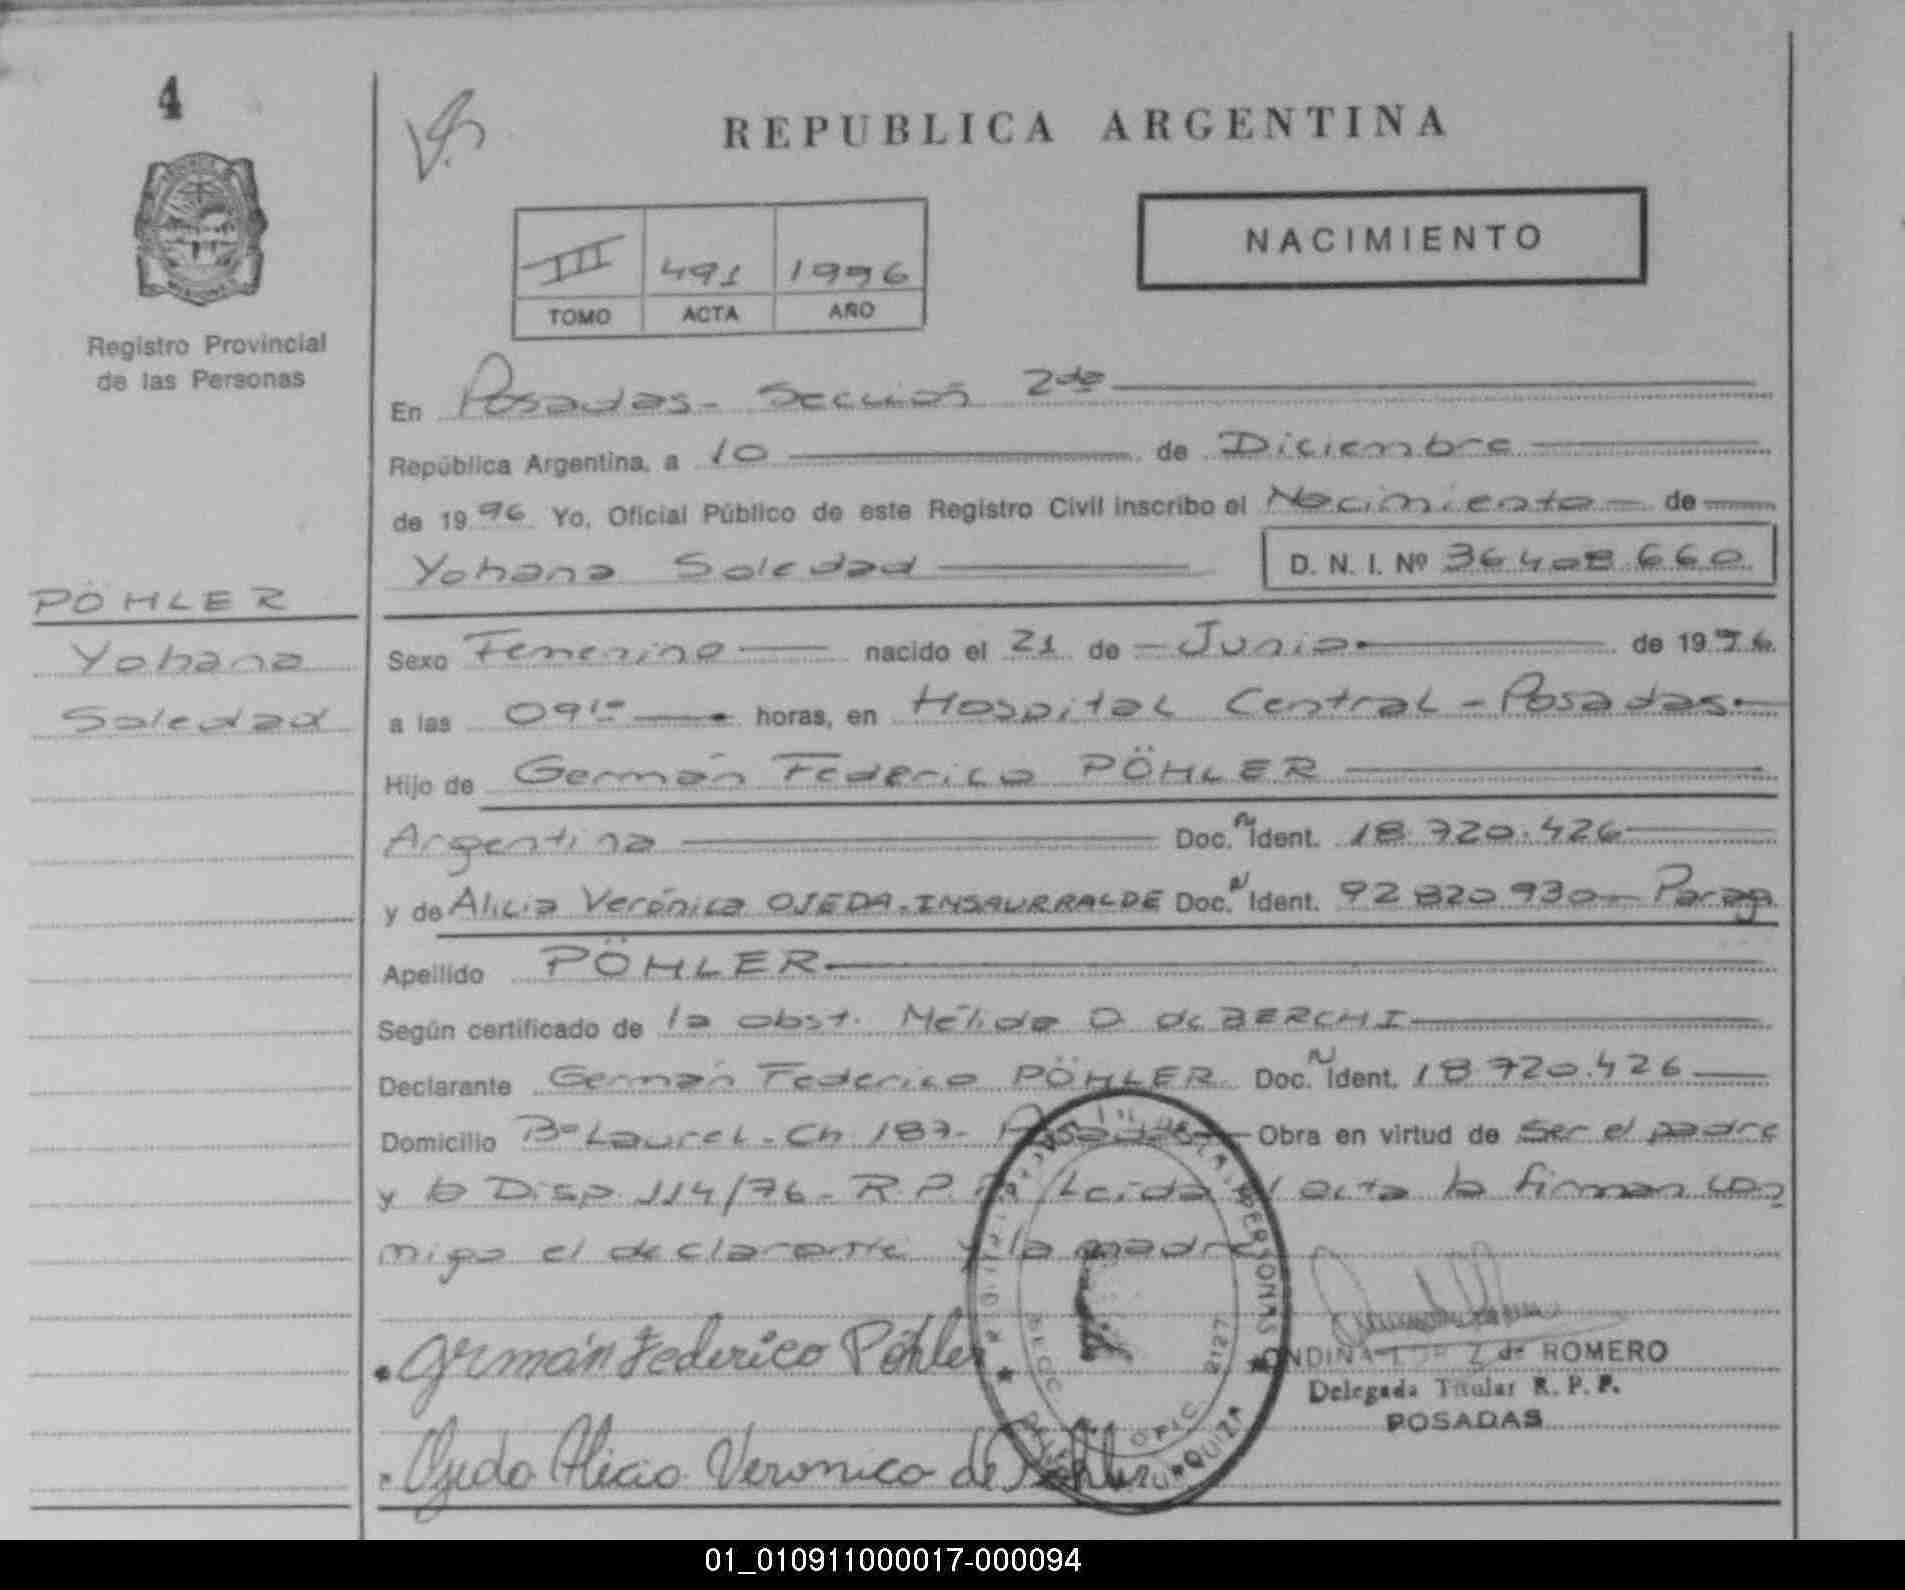 4
REPUBLICA ARGENTINA
NACIMIENTO
III 491 1996
TOMO ACTA AÑO
Registro Provincial
de las Personas
En Posadas - Sección 2da
República Argentina, a 10 de Diciembre
de 1996 Yo, Oficial Público de este Registro Civil inscribo el Nacimiento de
Yohana Soledad D. N. I. Nº 36.408.660
PÖHLER
Yohana
Soledad
Sexo Femenino nacido el 21 de Junio de 1996
a las 09 10 horas, en Hospital Central - Posadas.
Hijo de Germán Federico PÖHLER
Argentina Doc. N Ident. 18.720.426
y de Alicia Verónica OJEDA-INSAURRALDE Doc. N Ident. 92.820.930 - Parag
Apellido PÖHLER
Según certificado de la obst. Mélida D. de BERCHI
Declarante Germán Federico PÖHLER Doc. N Ident. 18.720.426
Domicilio Bº Laurel - Ch 187 - Posadas Obra en virtud de ser el padre
y la Disp. 114/76 - R.P.P. Leída el acta la firman con
migo el declarante y la madre
Germán Federico Pöhler
Ojeda Alicia Veronica de Pöhler
ONDINA de ROMERO
Delegada Titular R. P. P.
POSADAS
PERSONAS
2127
URQUIZA
01_010911000017-000094